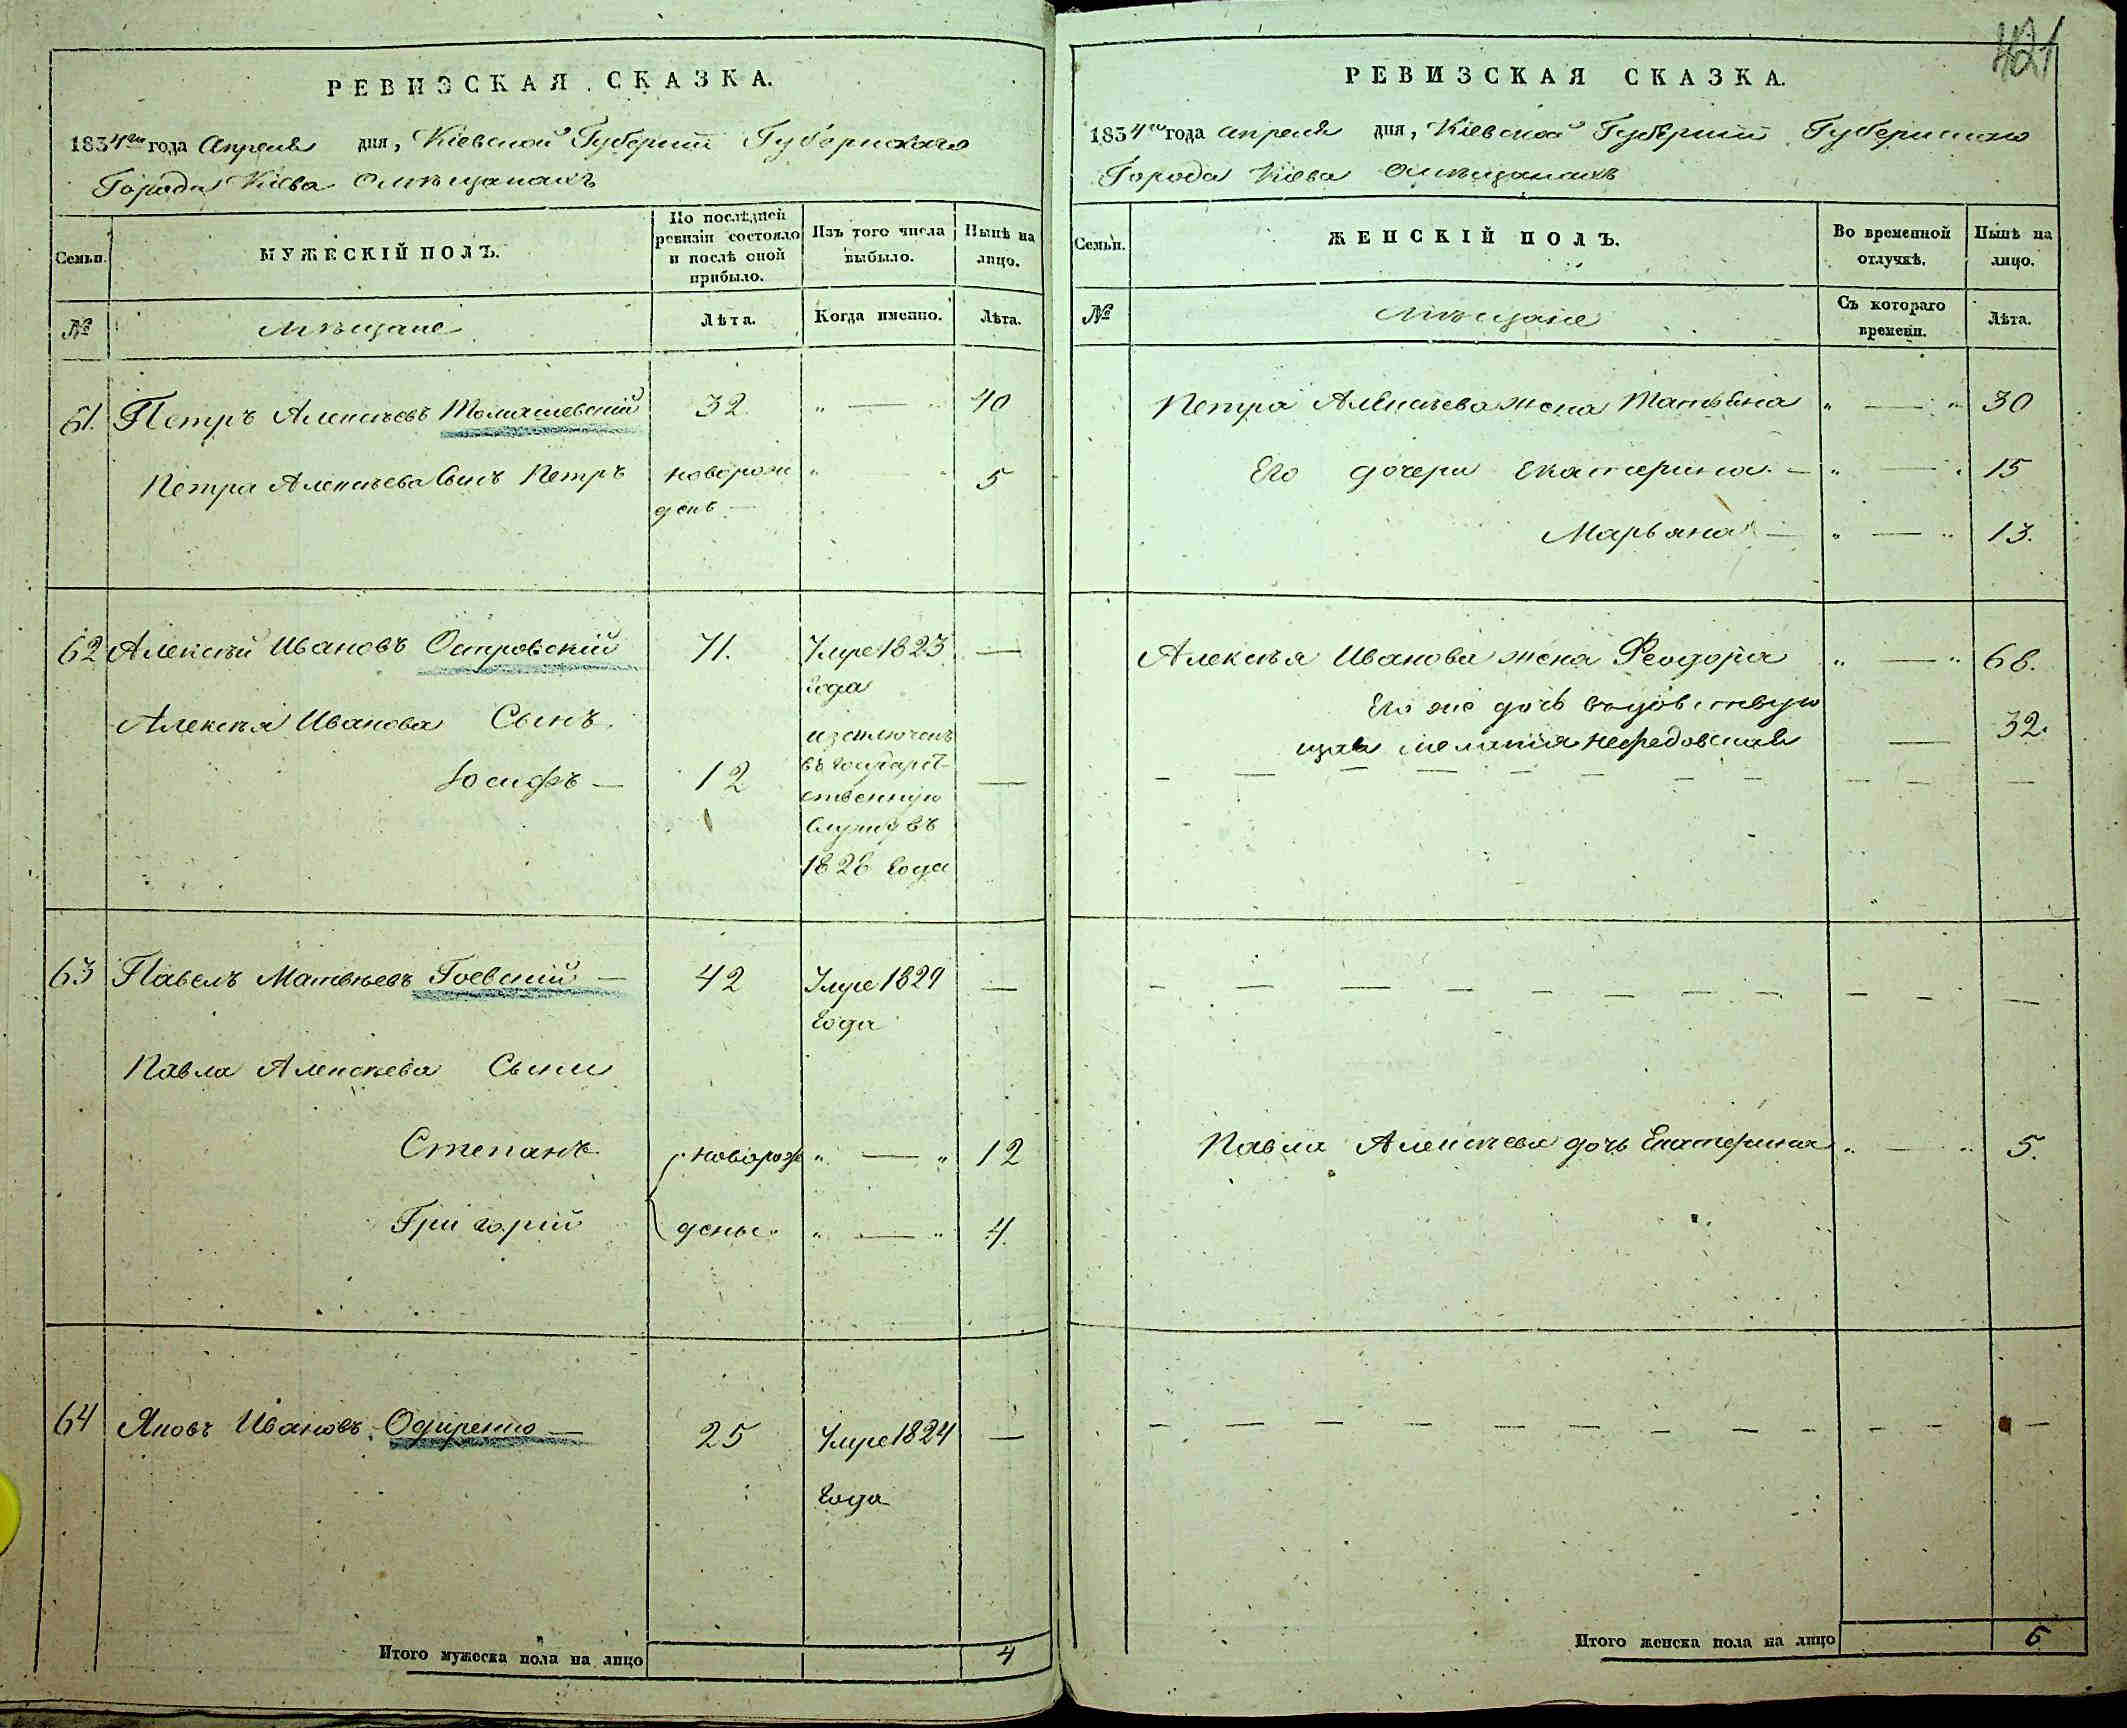 РЕВИЗСКАЯ СКАЗКА.
1834го года Апреля дня, Кіевской Губерніи Губернскаго
Города Кіева Омѣщанахъ
Семьи.
МУЖЕСКІЙ ПОЛЪ.
По послѣдней ревизіи состояло и послѣ оной прибыло.
Изъ того числа выбыло.
Нынѣ на лицо.
№
Мѣщане
Лѣта.
Когда именно.
Лѣта.
61. Петръ Алексѣевъ Томашевскій 32 " — " 40
Петра Алексѣева Сынъ Петръ новорож " — " 5
денъ —
62 Алексѣй Ивановъ Островскій 71. Умре 1823 —
года
Алексѣя Иванова Сынъ изключенъ
Іосифъ — 12 въ Государ —
ственную
Службу въ
1826 года
63 Павелъ Матвѣевъ Гоевскій — 42 Умре 1829 —
года
Павла Алексѣева Сыни
Степанъ новорож " — " 12
Григорій дены " — " 4.
64 Яковъ Ивановъ — 25 Умре 1824 —
года
Итого мужеска пола на лицо 4
421
РЕВИЗСКАЯ СКАЗКА.
1834го года апреля дня, Кіевской Губерніи Губернскаго
Города Кіева Омѣщанахъ
Семьи.
ЖЕНСКІЙ ПОЛЪ.
Во временной отлучкѣ.
Нынѣ на лицо.
№
Мѣщане
Съ котораго времени.
Лѣта.
Петра Алексѣева жена Татьяна " — " 30
Его дочери Екатерина — " — " 15
Марьяна — " — " 13.
Алексѣя Иванова жена Феодора " — " 68.
Его же дочь вдовствую
щая Меланія — 32.
Павла Алексѣева дочь Екатерина " — " 5.
Итого женска пола на лицо 6